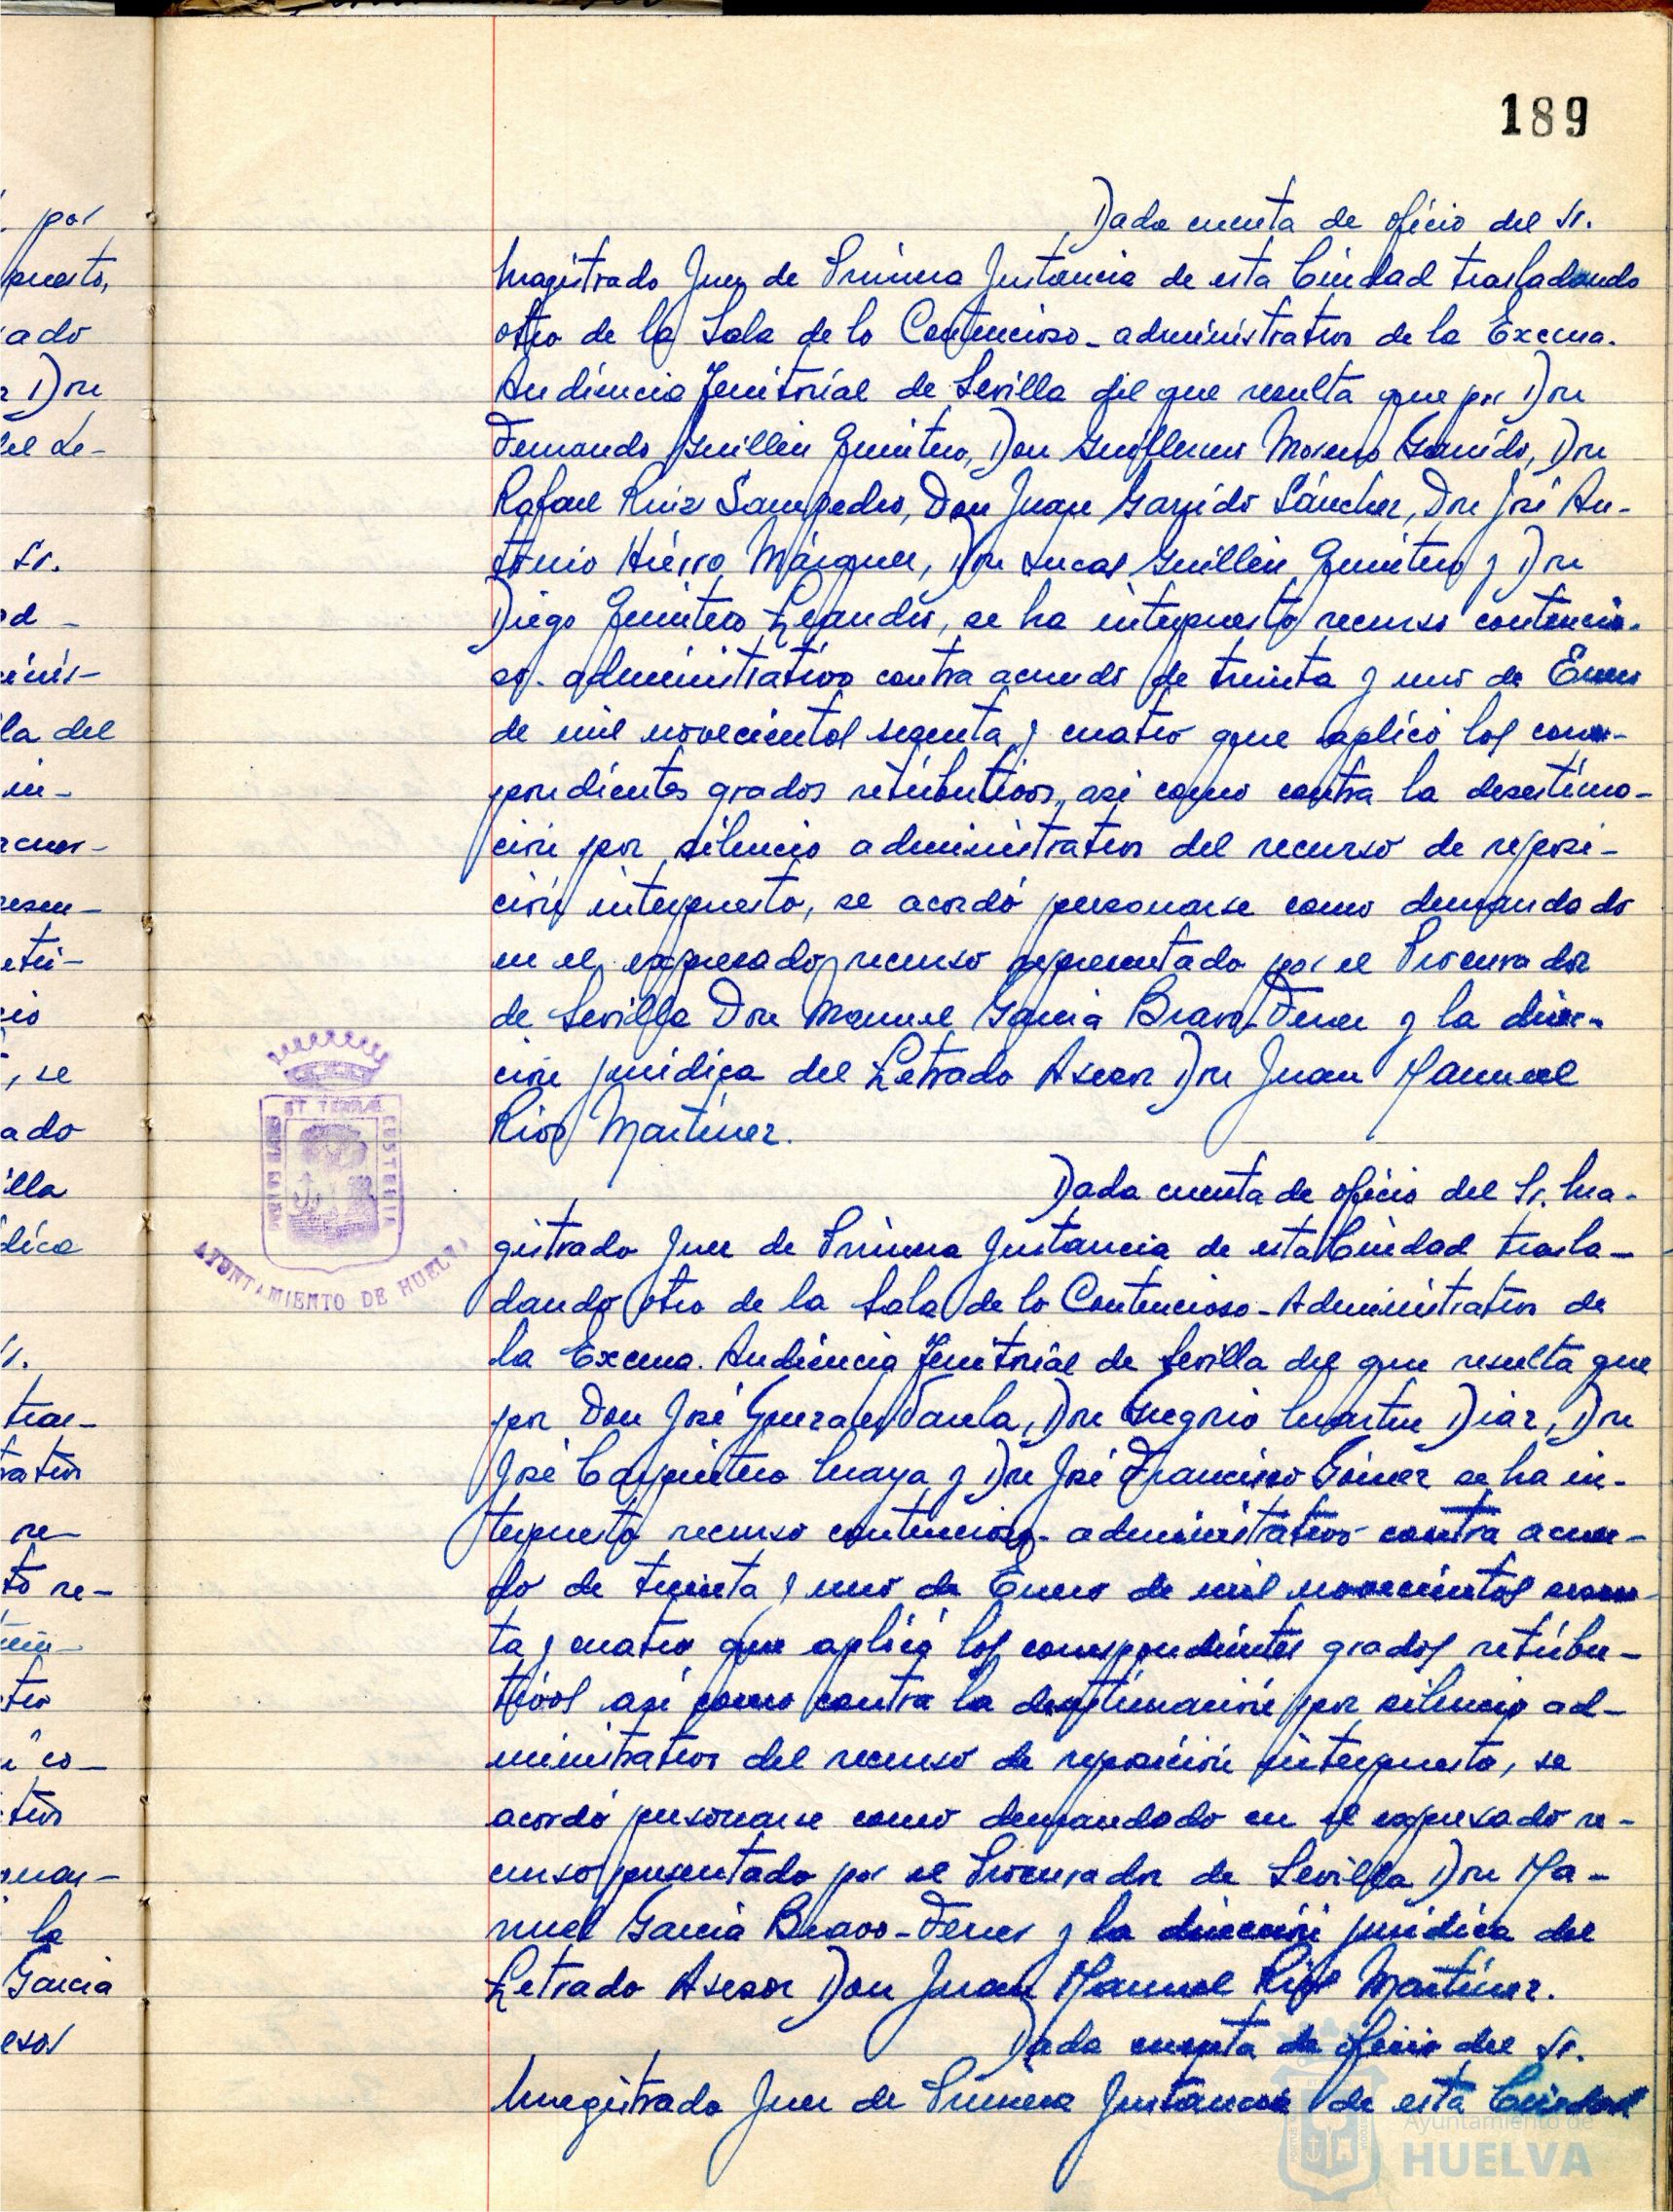 189
Dada cuenta de oficio del Sr.
Magistrado Juez de Primera Instancia de esta Ciudad trasladando
otro de la Sala de lo Contencioso-administrativo de la Excma.
Audiencia Territorial de Sevilla del que resulta que por Don
Fernando Guillén Quintero, Don Guillermo Moreno Garrido, Don
Rafael Ruiz Sampedro, Don Juan Garrido Sánchez, Don José An-
tonio Hierro Márquez, Don Lucas Guillén Quintero y Don
Diego Quintero Leandro, se ha interpuesto recurso contencio-
so-administrativo contra acuerdo de treinta y uno de Enero
de mil novecientos sesenta y cuatro que aplicó los corres-
pondientes grados retributivos, asi como contra la desestima-
ción por silencio administrativo del recurso de reposi-
ción interpuesto, se acordó personarse como demandado
en el expresado recurso representado por el Procurador
de Sevilla Don Manuel Garcia Bravo-Ferrer y la direc-
ción juridica del Letrado Asesor Don Juan Manuel
Rios Martinez.
Dada cuenta de oficio del Sr. Ma-
gistrado Juez de Primera Instancia de esta Ciudad trasla-
dando otro de la Sala de lo Contencioso-Administrativo de
la Excma. Audiencia Territorial de Sevilla del que resulta que
por Don José Gonzalez Varela, Don Gregorio Martin Diaz, Don
José Carpintero Maya y Don José Francisco Gómez se ha in-
terpuesto recurso contencioso-administrativo contra acuer-
do de treinta y uno de Enero de mil novecientos sesen-
ta y cuatro que aplicó los correspondientes grados retribu-
tivos asi como contra la desestimación por silencio ad-
ministrativo del recurso de reposición interpuesto, se
acordó personarse como demandado en el expresado re-
curso presentado por el Procurador de Sevilla Don Ma-
nuel Garcia Bravo-Ferrer y la dirección juridica del
Letrado Asesor Don Juan Manuel Rios Martinez.
Dada cuenta de oficio del Sr.
Magistrado Juez de Primera Instancia de esta Ciudad
AYUNTAMIENTO DE HUELVA
Ayuntamiento de
HUELVA